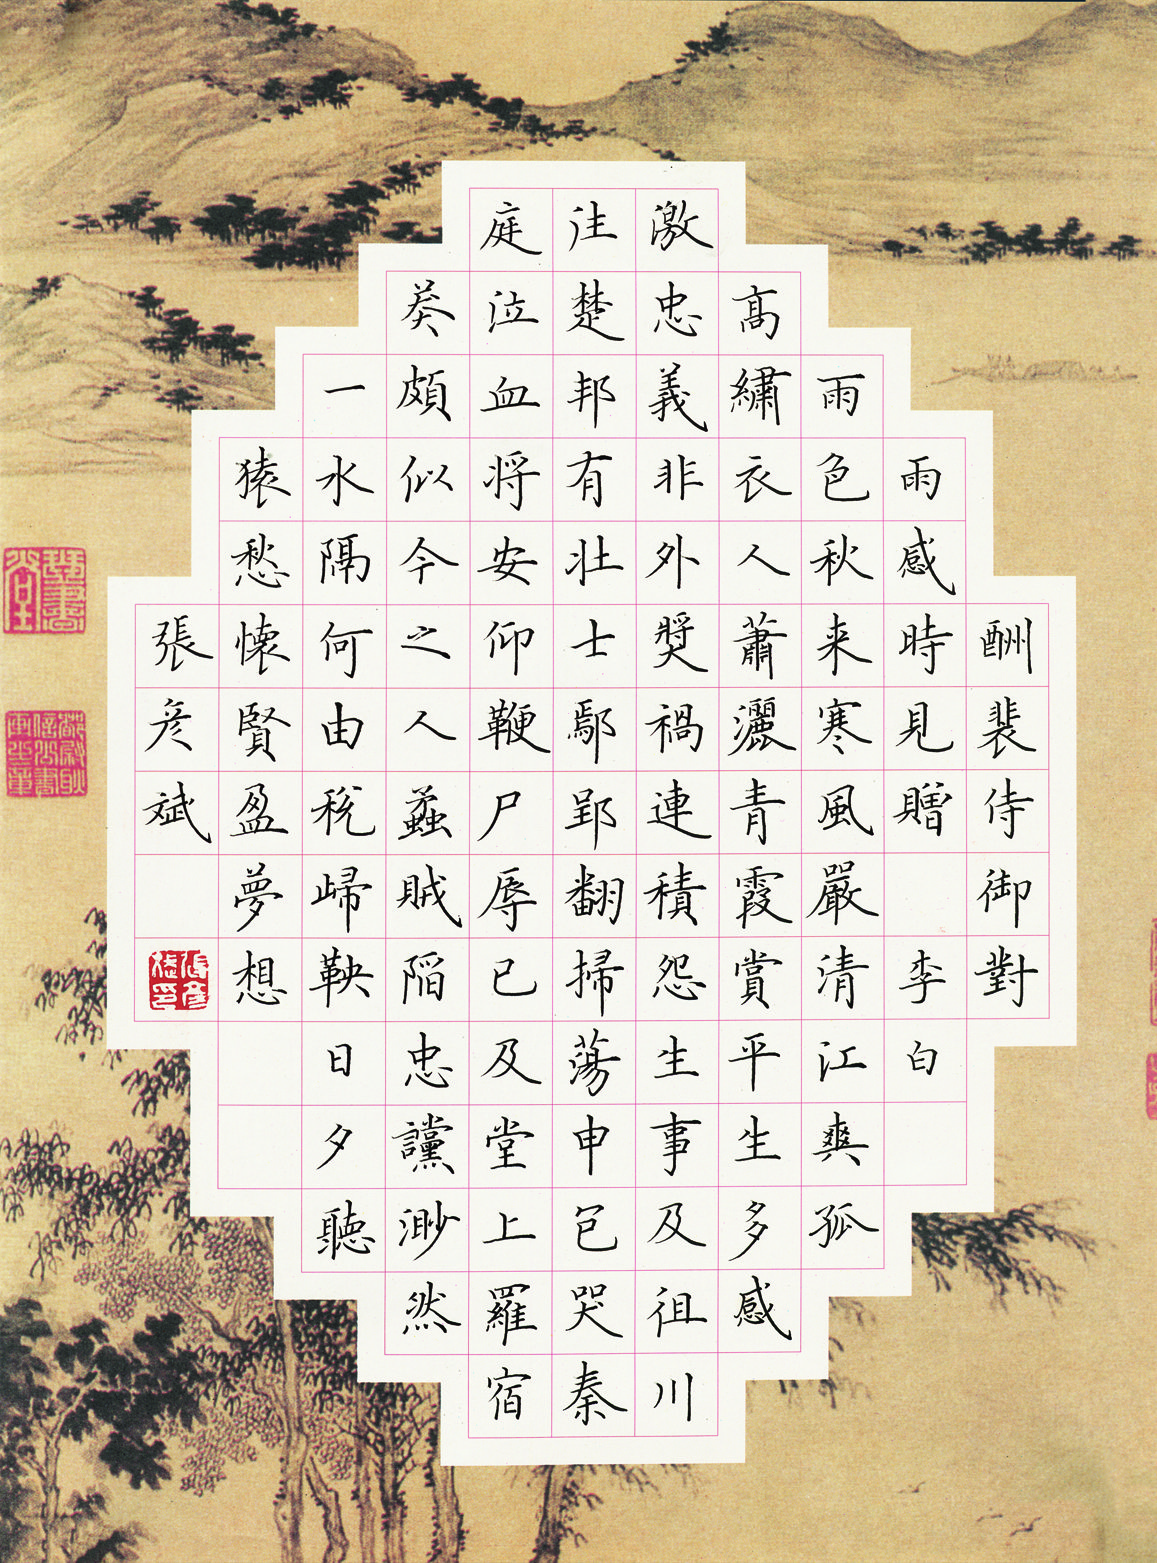 酬裴侍御對
雨感時見贈 李白
雨色秋来寒風嚴清江爽孤
高繡衣人蕭灑青霞賞平生多感
激忠義非外奬禍連積怨生事及徂川
往楚邦有壮士鄢郢翻掃蕩申包哭秦
庭泣血将安仰鞭尸辱已及堂上羅宿
莽頗似今之人蟊賊陷忠讜渺然
一水隔何由税歸鞅日夕聽
猿愁懷賢盈夢想
張彦斌